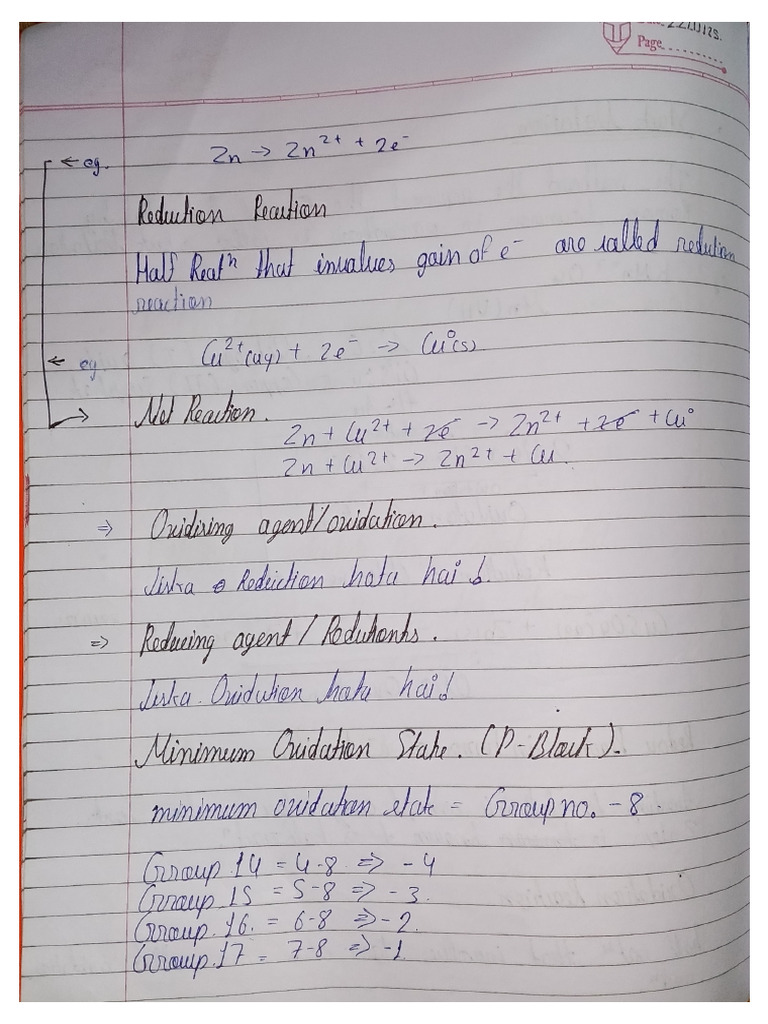 Page
← eg. Zn → Zn²⁺ + 2e⁻
Reduction Reaction
Half Reatⁿ that invalues gain of e⁻ are called redution
reaction
← eg Cu²⁺(aq) + 2e⁻ → Cu°(s)
→ Net Reaction.
Zn + Cu²⁺ + 2e⁻ → Zn²⁺ + 2e⁻ + Cu°
Zn + Cu²⁺ → Zn²⁺ + Cu
⇒ Oxidising agent/oxidation.
Jiska Reduction hota hai.
⇒ Reducing agent / Redutants.
Jiska Oxidation hota hai.
Minimum Oxidation State. (P-Block).
minimum oxidation state = Group no. - 8.
Group 14 = 4-8 ⇒ -4
Group 15 = 5-8 ⇒ -3.
Group. 16. = 6-8 ⇒ -2.
Group. 17 = 7-8 ⇒ -1